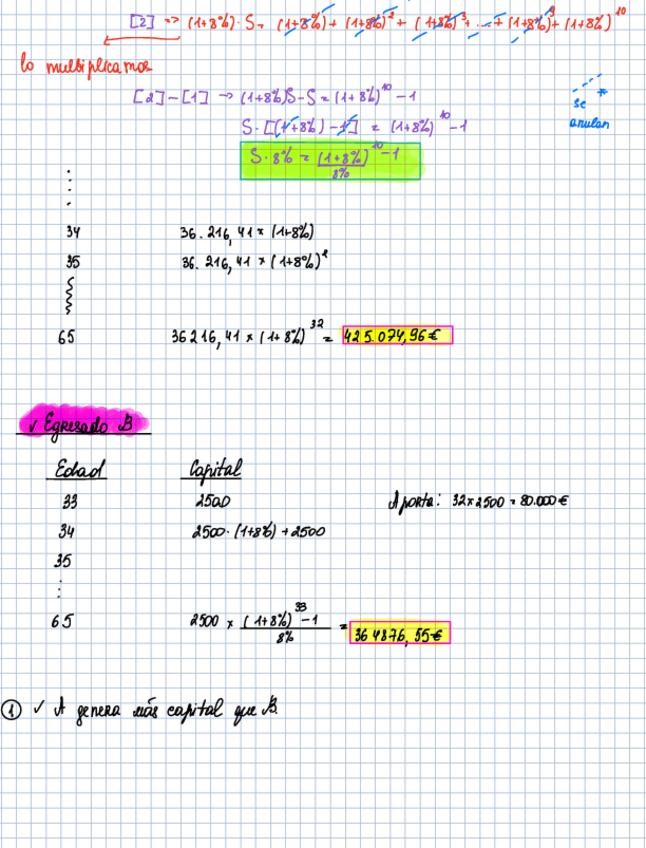 [2] => (1+8%)·S = (1+8%) + (1+8%)² + (1+8%)³ + ... + (1+8%)⁹ + (1+8%)¹⁰
lo multiplicamos
[2]-[1] → (1+8%)S-S = (1+8%)¹⁰-1
S·[(1+8%)-1] = (1+8%)¹⁰-1
se anulan
S·8% = (1+8%)¹⁰-1 / 8%
34 36.216,41 × (1+8%)
35 36.216,41 × (1+8%)²
65 36216,41 × (1+8%)³² = 425.074,96€
✓ Egresado B
Edad Capital
33 2500 Aporta: 32×2500 = 80.000€
34 2500·(1+8%)+2500
35
65 2500 × (1+8%)³³-1 / 8% = 364876,55€
① ✓ A genera más capital que B.